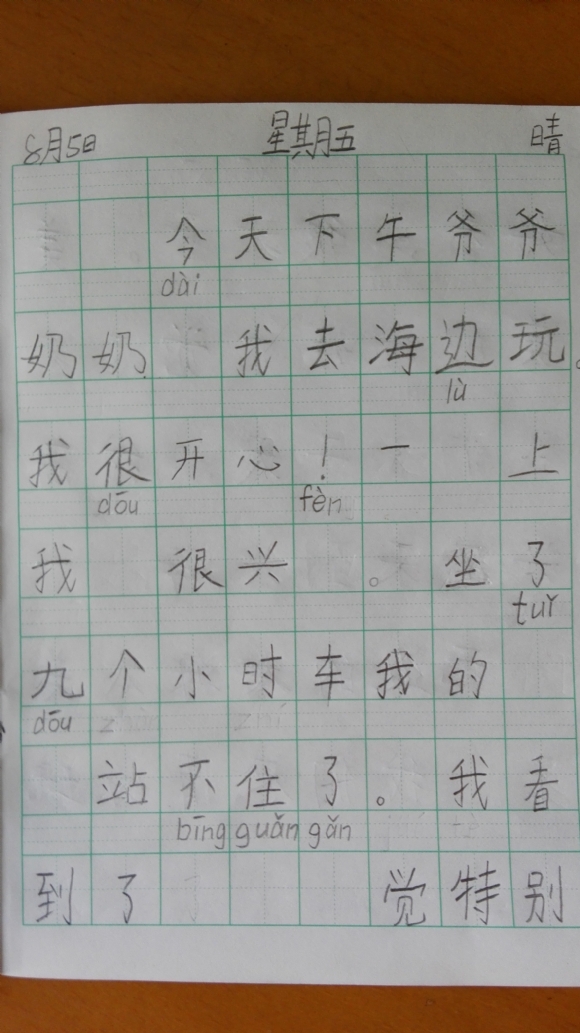 8月5日 星期五 晴
今天下午爷爷
dài
奶奶 我去海边玩。
lù
我很开心！一 上
dōu fèn
我 很兴 。坐了
tuǐ
九个小时车我的
dōu
站不住了。我看
bīng guǎn gǎn
到了 觉特别